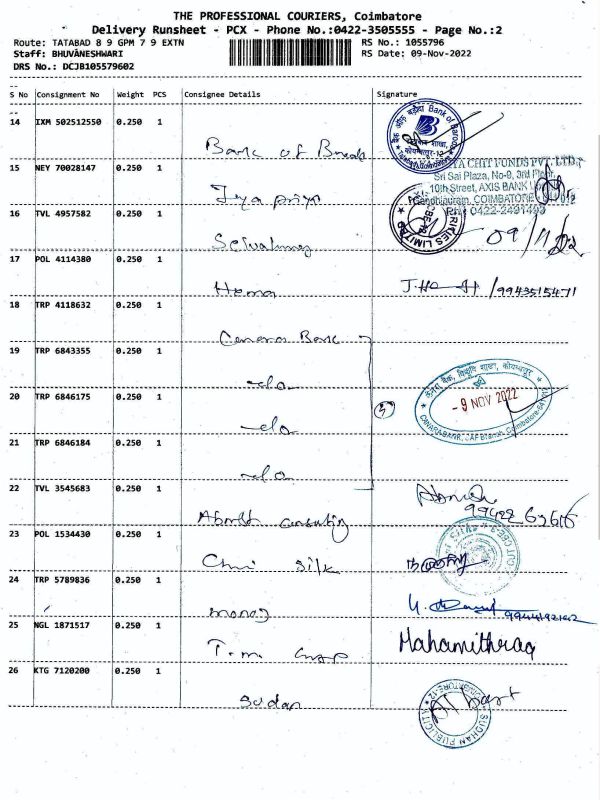 THE PROFESSIONAL COURIERS, Coimbatore
Delivery Runsheet - PCX - Phone No.:0422-3505555 - Page No.:2
Route: TATABAD 8 9 GPM 7 9 EXTN RS No.: 1055796
Staff: BHUVANESHWARI RS Date: 09-Nov-2022
DRS No.: DCJB105579602
S No Consignment No Weight PCS Consignee Details Signature
14 IXM 502512550 0.250 1
Bank of
Bank of Baroda
15 NEY 70028147 0.250 1
Jya priya
CHIT FUNDS PVT. LTD.,
Sri Sai Plaza, No-9, 3rd Floor,
10th Street, AXIS BANK
Gandhipuram, COIMBATORE
Ph: 0422-2491493
16 TVL 4957582 0.250 1
LIMITED
09/11/22
17 POL 4114380 0.250 1
Hema
9943515471
18 TRP 4118632 0.250 1
Canara Bank
19 TRP 6843355 0.250 1
-do-
केनरा बैंक
- 9 NOV 2022
CANARA BANK, Coimbatore
20 TRP 6846175 0.250 1
-do-
5
21 TRP 6846184 0.250 1
-do-
22 TVL 3545683 0.250 1
Consulting
23 POL 1534430 0.250 1
Silk
24 TRP 5789836 0.250 1
money
25 NGL 1871517 0.250 1
T.m.
Mahamithraa
26 KTG 7120200 0.250 1
Sudan
SUDHAN PUBLICITY
COIMBATORE-12